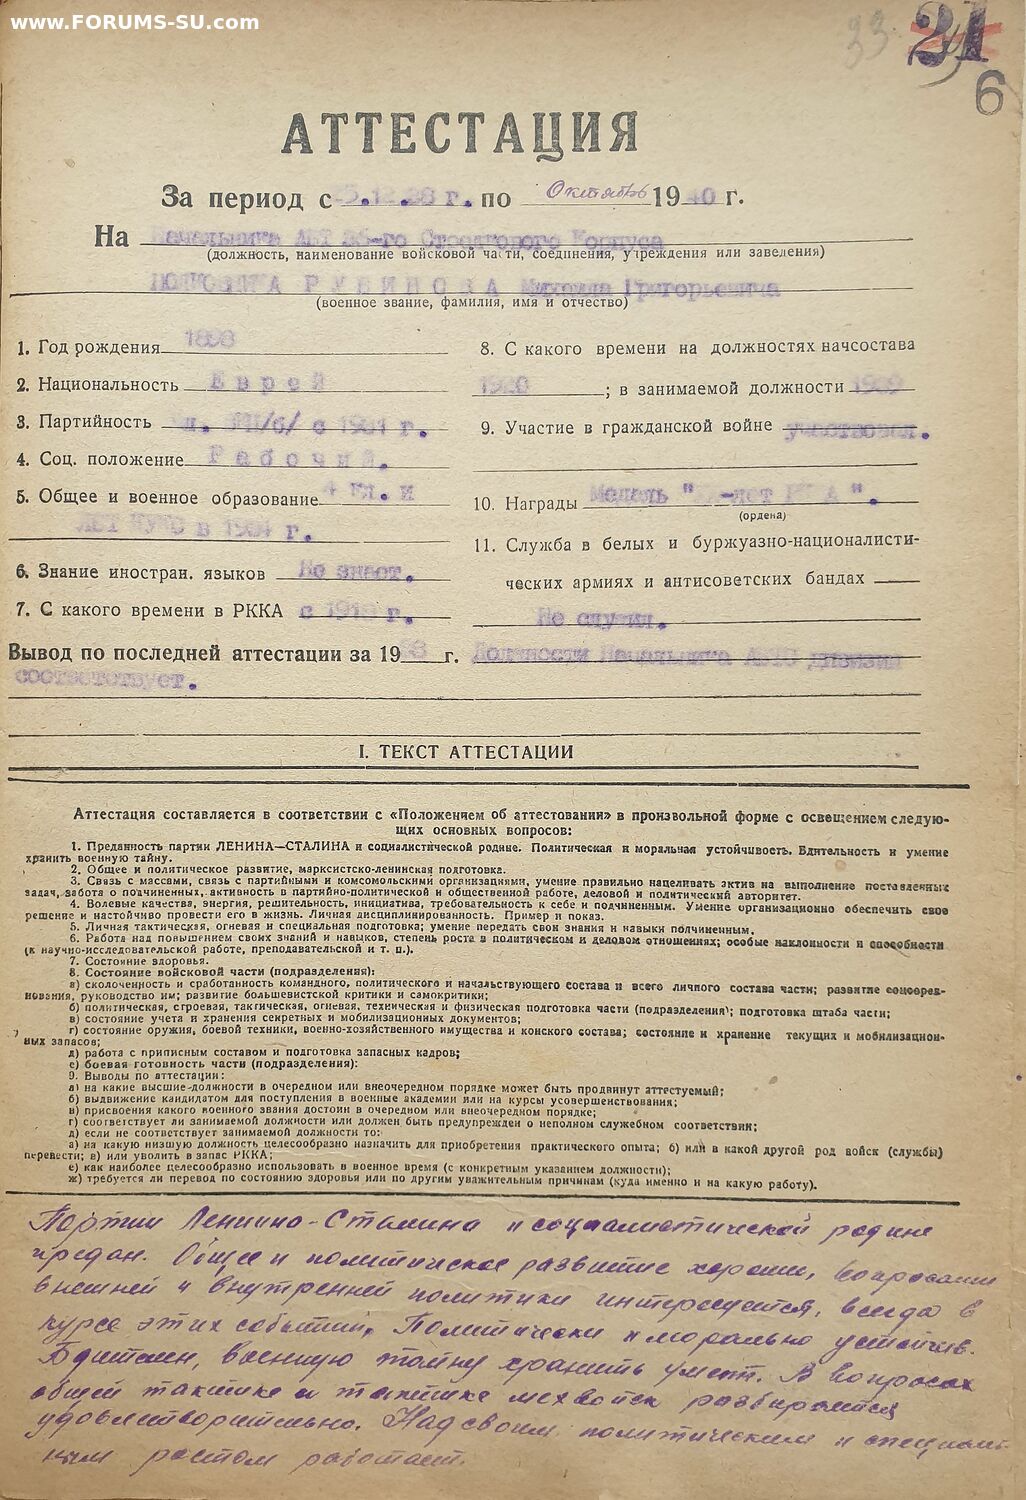 www.FORUMS-SU.com
33
21
6
АТТЕСТАЦИЯ
За период с 25.12.38 г. по Октябрь 1940 г.
На Начальника АБТ 35-го Стрелкового Корпуса
(должность, наименование войсковой части, соединения, учреждения или заведения)
Полковника РУБИНОВА Михаила Григорьевича
(военное звание, фамилия, имя и отчество)
1. Год рождения 1898
2. Национальность Еврей
3. Партийность чл. ВКП/б/ с г.
4. Соц. положение Рабочий.
5. Общее и военное образование 4 кл. и
в г.
6. Знание иностран. языков Не знает.
7. С какого времени в РККА с г.
8. С какого времени на должностях начсостава
1920; в занимаемой должности 1939
9. Участие в гражданской войне участвовал.
10. Награды Медаль "XX-лет РККА".
(ордена)
11. Служба в белых и буржуазно-националисти-
ческих армиях и антисоветских бандах
Не служил.
Вывод по последней аттестации за 1938 г. Должности Начальника АБТО дивизии
соответствует.
I. ТЕКСТ АТТЕСТАЦИИ
Аттестация составляется в соответствии с «Положением об аттестовании» в произвольной форме с освещением следую-
щих основных вопросов:
1. Преданность партии ЛЕНИНА—СТАЛИНА и социалистической родине. Политическая и моральная устойчивость. Бдительность и умение
хранить военную тайну.
2. Общее и политическое развитие, марксистско-ленинская подготовка.
3. Связь с массами, связь с партийными и комсомольскими организациями, умение правильно нацеливать актив на выполнение поставленных
задач, забота о подчиненных, активность в партийно-политической и общественной работе, деловой и политический авторитет.
4. Волевые качества, энергия, решительность, инициатива, требовательность к себе и подчиненным. Умение организационно обеспечить свое
решение и настойчиво провести его в жизнь. Личная дисциплинированность. Пример и показ.
5. Личная тактическая, огневая и специальная подготовка; умение передать свои знания и навыки подчиненным.
6. Работа над повышением своих знаний и навыков, степень роста в политическом и деловом отношениях; особые наклонности и способности
(к научно-исследовательской работе, преподавательской и т. п.).
7. Состояние здоровья.
8. Состояние войсковой части (подразделения):
а) сколоченность и сработанность командного, политического и начальствующего состава и всего личного состава части; развитие соцсорев-
нования, руководство им; развитие большевистской критики и самокритики;
б) политическая, строевая, тактическая, огневая, техническая и физическая подготовка части (подразделения); подготовка штаба части;
в) состояние учета и хранения секретных и мобилизационных документов;
г) состояние оружия, боевой техники, военно-хозяйственного имущества и конского состава; состояние и хранение текущих и мобилизацион-
ных запасов;
д) работа с приписным составом и подготовка запасных кадров;
е) боевая готовность части (подразделения):
9. Выводы по аттестации:
а) на какие высшие-должности в очередном или внеочередном порядке может быть продвинут аттестуемый;
б) выдвижение кандидатом для поступления в военные академии или на курсы усовершенствования;
в) присвоения какого военного звания достоин в очередном или внеочередном порядке;
г) соответствует ли занимаемой должности или должен быть предупрежден о неполном служебном соответствии;
д) если не соответствует занимаемой должности то:
а) на какую низшую должность целесообразно назначить для приобретения практического опыта; б) или в какой другой род войск (службы)
перевести; в) или уволить в запас РККА;
е) как наиболее целесообразно использовать в военное время (с конкретным указанием должности);
ж) требуется ли перевод по состоянию здоровья или по другим уважительным причинам (куда именно и на какую работу).
Партии Ленина-Сталина и социалистической родине
предан. Общее и политическое развитие хорошее, вопросами
внешней и внутренней политики интересуется, всегда в
курсе этих событий. Политически и морально устойчив.
Бдителен, военную тайну хранить умеет. В вопросах
общей тактики и тактике мехвойск разбирается
удовлетворительно. Над своим политическим и специаль-
ным ростом работает.